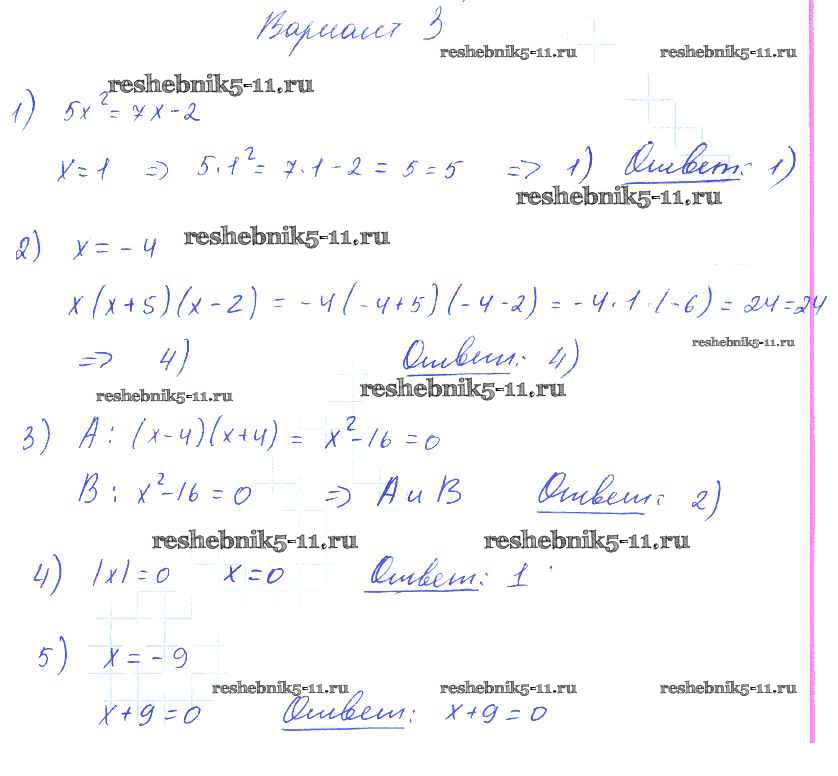 Вариант 3
reshebnik5-11.ru reshebnik5-11.ru
reshebnik5-11.ru
1) 5x² = 7x - 2
x = 1 => 5·1² = 7·1 - 2 = 5 = 5 => 1) Ответ: 1)
reshebnik5-11.ru
2) x = - 4 reshebnik5-11.ru
x(x+5)(x-2) = -4(-4+5)(-4-2) = -4·1·(-6) = 24 = 24
reshebnik5-11.ru
=> 4) Ответ: 4)
reshebnik5-11.ru reshebnik5-11.ru
3) A: (x-4)(x+4) = x²-16 = 0
B: x²-16 = 0 => A и B Ответ: 2)
reshebnik5-11.ru reshebnik5-11.ru
4) |x| = 0 x = 0 Ответ: 1
5) x = - 9
reshebnik5-11.ru reshebnik5-11.ru reshebnik5-11.ru
x+9=0 Ответ: x+9=0